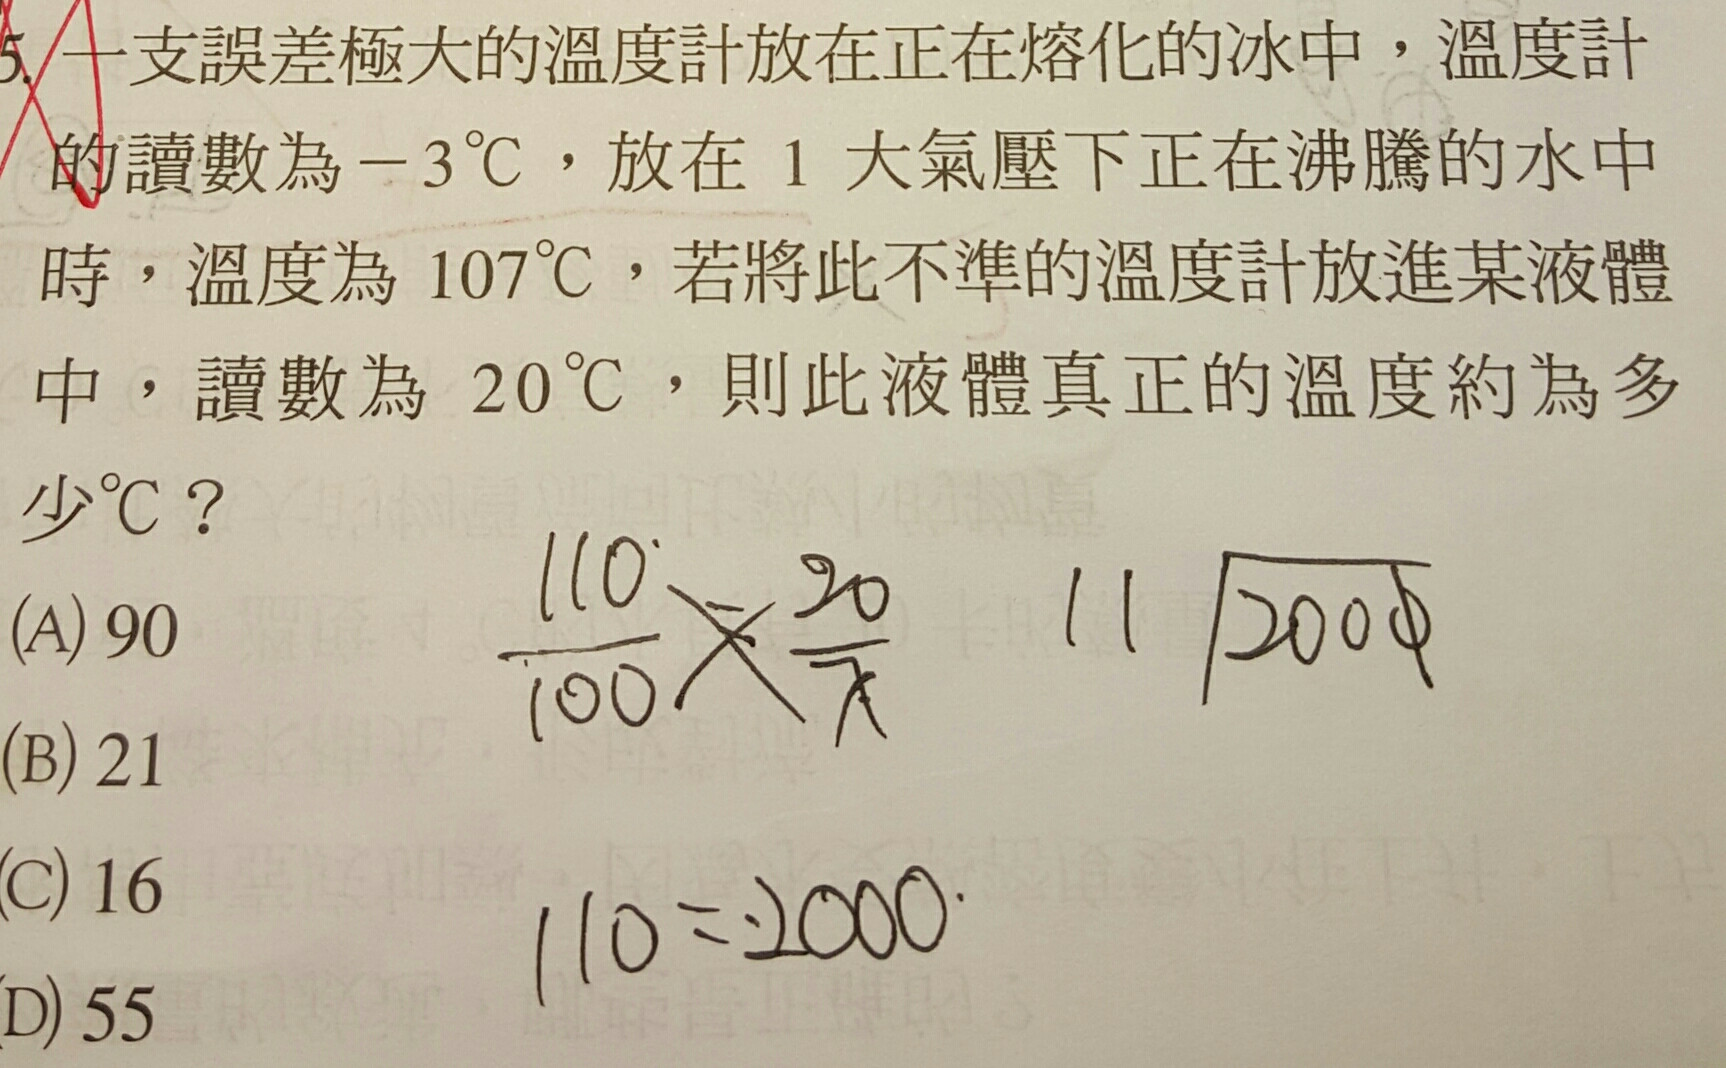 5. 一支誤差極大的溫度計放在正在熔化的冰中，溫度計
的讀數為－3℃，放在 1 大氣壓下正在沸騰的水中
時，溫度為 107℃，若將此不準的溫度計放進某液體
中，讀數為 20℃，則此液體真正的溫度約為多
少℃？
(A) 90
(B) 21
(C) 16
(D) 55
110/100 = 20/x
11 2000
110=2000